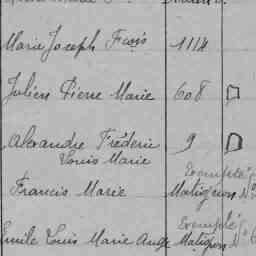 Marie Joseph Frcis 1114
Julien Pierre Marie 608
Alexandre Frédéric 9
Louis Marie
Exempté
Francis Marie Matignon N°
Exempté
Emile Louis Marie Ange Matignon N° 6